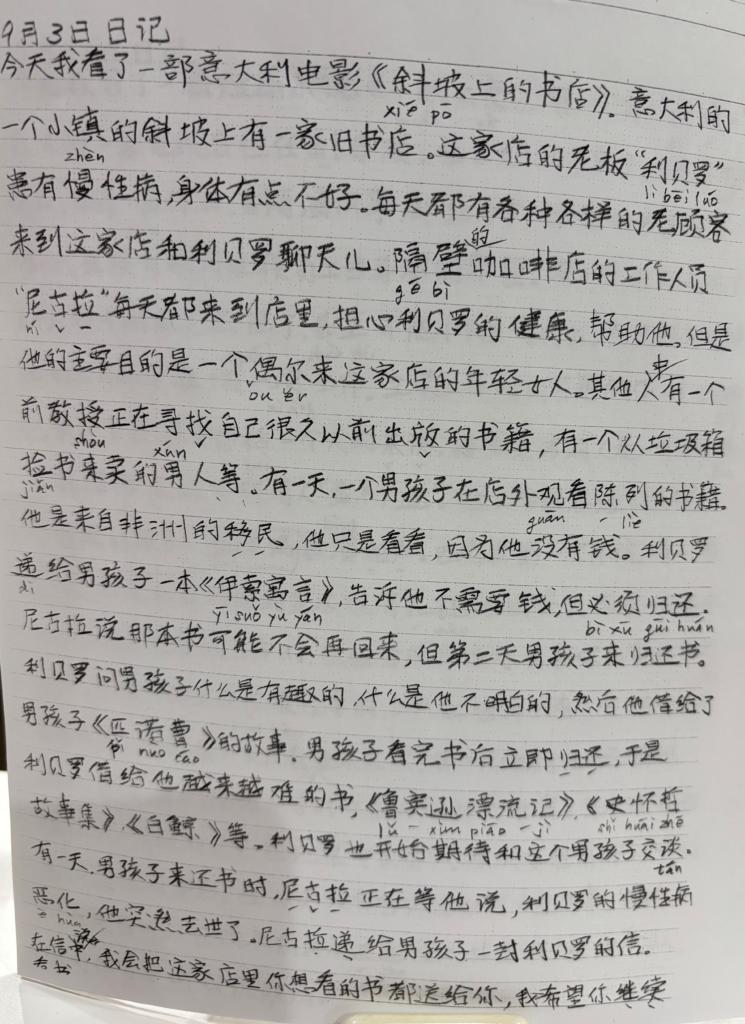 9月3日 日记
今天我看了一部意大利电影《斜坡上的书店》. 意大利的
xié pō
一个小镇的斜坡上有一家旧书店。这家店的老板“利贝罗”
zhèn
lì bèi luō
患有慢性病,身体有点不好。每天都有各种各样的老顾客
来到这家店和利贝罗聊天儿。隔壁的咖啡店的工作人员
gé bì
“尼古拉”每天都来到店里,担心利贝罗的健康,帮助他。但是
ní
他的主要目的是一个偶尔来这家店的年轻女人。其他人有一个
ǒu ěr
前教授正在寻找自己很久以前出放的书籍,有一个从垃圾箱
shòu xún
捡书来卖的男人等。有一天,一个男孩子在店外观看陈列的书籍。
jiǎn
guān liè
他是来自非洲的移民,他只是看看,因为他没有钱。利贝罗
递给男孩子一本《伊索寓言》,告诉他不需要钱,但必须归还.
dì
yī suǒ yù yán
bì xū guī huán
尼古拉说那本书可能不会再回来,但第二天男孩子来归还书。
利贝罗问男孩子什么是有趣的,什么是他不明白的,然后他借给了
男孩子《匹诺曹》的故事. 男孩子看完书后立即归还,于是
pǐ nuò cáo
利贝罗借给他越来越难的书,《鲁宾逊漂流记》,《史怀哲
lǔ xùn piāo jì
shǐ huái zhé
故事集》,《白鲸》等。利贝罗也开始期待和这个男孩子交谈.
tán
有一天,男孩子来还书时,尼古拉正在等他说,利贝罗的慢性病
恶化,他突然去世了。尼古拉递给男孩子一封利贝罗的信。
è huà
在信中,我会把这家店里你想看的书都送给你,我希望你继续